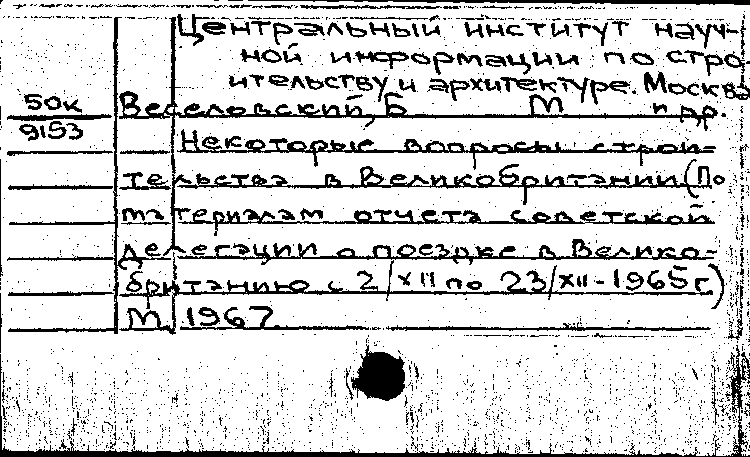 Центральный институт науч-
ной информации по стро-
ительству и архитектуре. Москва
50к Веселовский, Б М и др.
9153 Некоторые вопросы строи-
тельства в Великобритании (По
материалам отчета советской
делегации о поездке в Велико-
британию с 2/XII по 23/XII-1965г.)
М. 1967.